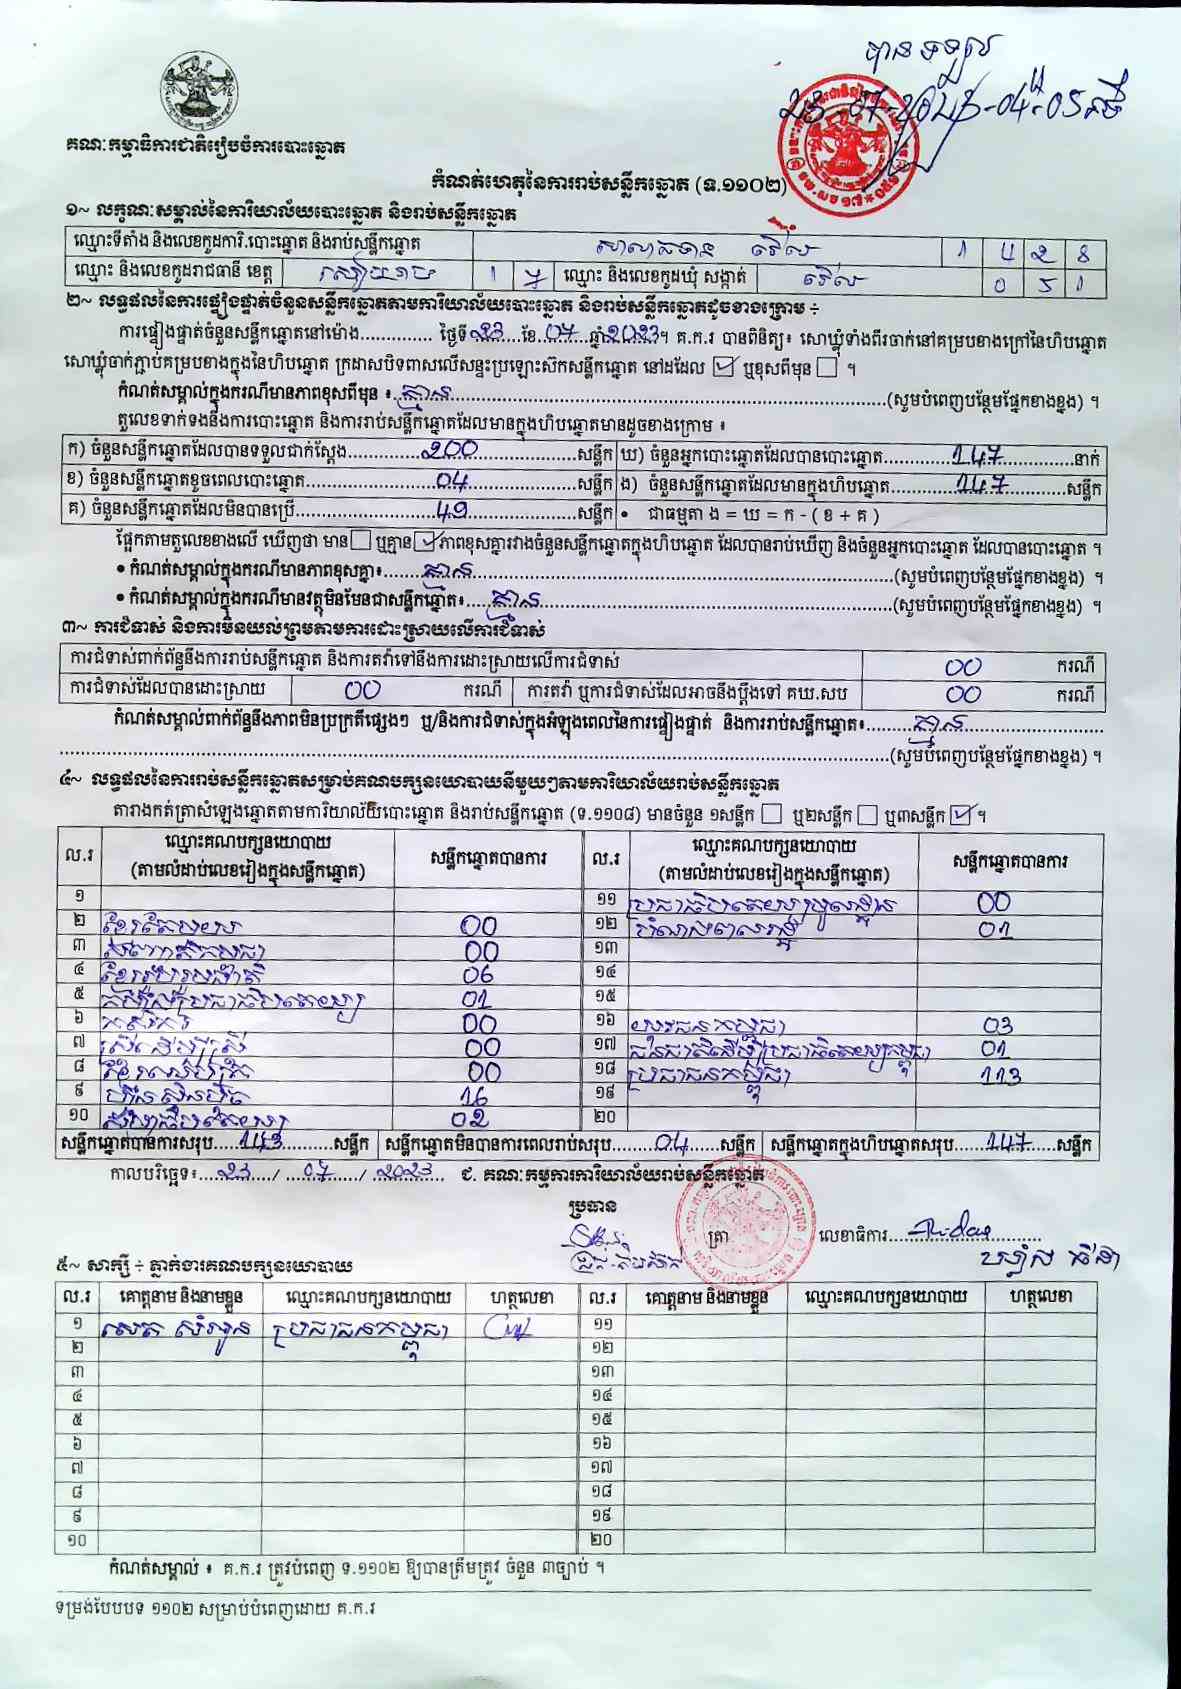 បានទទួល
23-07-2023-04:05 នាទី
គណៈកម្មាធិការជាតិរៀបចំការបោះឆ្នោត
កំណត់ហេតុនៃការរាប់សន្លឹកឆ្នោត (ទ.១១០២)
១~ លក្ខណៈសម្គាល់នៃការិយាល័យបោះឆ្នោត និងរាប់សន្លឹកឆ្នោត
ឈ្មោះទីតាំង និងលេខកូដការិ.បោះឆ្នោត និងរាប់សន្លឹកឆ្នោត សាលាឆទាន វើល 1 4 2 8
ឈ្មោះ និងលេខកូដរាជធានី ខេត្ត សៀមរាប 1 7 ឈ្មោះ និងលេខកូដឃុំ សង្កាត់ វើល 0 5 1
២~ លទ្ធផលនៃការផ្ទៀងផ្ទាត់ចំនួនសន្លឹកឆ្នោតតាមការិយាល័យបោះឆ្នោត និងរាប់សន្លឹកឆ្នោតដូចខាងក្រោម ៖
ការផ្ទៀងផ្ទាត់ចំនួនសន្លឹកឆ្នោតនៅម៉ោង............... ថ្ងៃទី 23 ខែ 07 ឆ្នាំ 2023 ។ គ.ក.រ បានពិនិត្យ៖ សោឃ្លុំទាំងពីរចាក់នៅគម្របខាងក្រៅនៃហិបឆ្នោត
សោឃ្លុំចាក់ភ្ជាប់គម្របខាងក្នុងនៃហិបឆ្នោត ក្រដាសបិទពាសលើសន្ទះប្រឡោះស៊កសន្លឹកឆ្នោត នៅដដែល ☑ ឬខុសពីមុន ☐ ។
កំណត់សម្គាល់ក្នុងករណីមានភាពខុសពីមុន ៖ គ្មាន (សូមបំពេញបន្ថែមផ្នែកខាងខ្នង) ។
តួលេខទាក់ទងនឹងការបោះឆ្នោត និងការរាប់សន្លឹកឆ្នោតដែលមានក្នុងហិបឆ្នោតមានដូចខាងក្រោម ៖
ក) ចំនួនសន្លឹកឆ្នោតដែលបានទទួលជាក់ស្តែង 200 សន្លឹក ឃ) ចំនួនអ្នកបោះឆ្នោតដែលបានបោះឆ្នោត 147 នាក់
ខ) ចំនួនសន្លឹកឆ្នោតខូចពេលបោះឆ្នោត 04 សន្លឹក ង) ចំនួនសន្លឹកឆ្នោតដែលមានក្នុងហិបឆ្នោត 147 សន្លឹក
គ) ចំនួនសន្លឹកឆ្នោតដែលមិនបានប្រើ 49 សន្លឹក • ជាធម្មតា ង = ឃ = ក - ( ខ + គ )
ផ្អែកតាមតួលេខខាងលើ ឃើញថា មាន ☐ ឬគ្មាន ☑ ភាពខុសគ្នារវាងចំនួនសន្លឹកឆ្នោតក្នុងហិបឆ្នោត ដែលបានរាប់ឃើញ និងចំនួនអ្នកបោះឆ្នោត ដែលបានបោះឆ្នោត ។
• កំណត់សម្គាល់ក្នុងករណីមានភាពខុសគ្នា៖ គ្មាន (សូមបំពេញបន្ថែមផ្នែកខាងខ្នង) ។
• កំណត់សម្គាល់ក្នុងករណីមានវត្ថុមិនមែនជាសន្លឹកឆ្នោត៖ គ្មាន (សូមបំពេញបន្ថែមផ្នែកខាងខ្នង) ។
៣~ ការជំទាស់ និងការមិនយល់ព្រមតាមការដោះស្រាយលើការជំទាស់
ការជំទាស់ពាក់ព័ន្ធនឹងការរាប់សន្លឹកឆ្នោត និងការតវ៉ាទៅនឹងការដោះស្រាយលើការជំទាស់ 00 ករណី
ការជំទាស់ដែលបានដោះស្រាយ 00 ករណី ការតវ៉ា ឬការជំទាស់ដែលអាចនឹងប្តឹងទៅ គឃ.សប 00 ករណី
កំណត់សម្គាល់ពាក់ព័ន្ធនឹងភាពមិនប្រក្រតីផ្សេងៗ ឬ/និងការជំទាស់ក្នុងអំឡុងពេលនៃការផ្ទៀងផ្ទាត់ និងការរាប់សន្លឹកឆ្នោត៖ គ្មាន
(សូមបំពេញបន្ថែមផ្នែកខាងខ្នង) ។
៤~ លទ្ធផលនៃការរាប់សន្លឹកឆ្នោតសម្រាប់គណបក្សនយោបាយនីមួយៗតាមការិយាល័យរាប់សន្លឹកឆ្នោត
តារាងកត់ត្រាសំឡេងឆ្នោតតាមការិយាល័យបោះឆ្នោត និងរាប់សន្លឹកឆ្នោត (ទ.១១០៨) មានចំនួន ១សន្លឹក ☐ ឬ២សន្លឹក ☐ ឬ៣សន្លឹក ☑ ។
ល.រ ឈ្មោះគណបក្សនយោបាយ (តាមលំដាប់លេខរៀងក្នុងសន្លឹកឆ្នោត) សន្លឹកឆ្នោតបានការ ល.រ ឈ្មោះគណបក្សនយោបាយ (តាមលំដាប់លេខរៀងក្នុងសន្លឹកឆ្នោត) សន្លឹកឆ្នោតបានការ
១ ១១ ប្រជាធិបតេយ្យមូលដ្ឋាន 00
២ ខ្មែរតែមួយ 00 ១២ បំណងពលរដ្ឋ 01
៣ 00 ១៣
៤ ខ្មែររួបរួមជាតិ 06 ១៤
៥ កម្លាំងប្រជាធិបតេយ្យ 01 ១៥
៦ កសិករ 00 ១៦ យុវជនកម្ពុជា 03
៧ ស្រីដើម្បីស្រី 00 ១៧ ជនជាតិដើមប្រជាធិបតេយ្យកម្ពុជា 01
៨ ខ្មែរអភិរក្ស 00 ១៨ ប្រជាជនកម្ពុជា 113
៩ ហ៊្វុនស៊ិនប៉ិច 16 ១៩
១០ សំបុកឃ្មុំសង្គមប្រជាធិបតេយ្យ 02 ២០
សន្លឹកឆ្នោតបានការសរុប 143 សន្លឹក សន្លឹកឆ្នោតមិនបានការពេលរាប់សរុប 04 សន្លឹក សន្លឹកឆ្នោតក្នុងហិបឆ្នោតសរុប 147 សន្លឹក
កាលបរិច្ឆេទ៖ 23 / 07 / 2023 ជ. គណៈកម្មការការិយាល័យរាប់សន្លឹកឆ្នោត
ប្រធាន
ត្រា លេខាធិការ
៥~ សាក្សី ៖ ភ្នាក់ងារគណបក្សនយោបាយ
ល.រ គោត្តនាម និងនាមខ្លួន ឈ្មោះគណបក្សនយោបាយ ហត្ថលេខា ល.រ គោត្តនាម និងនាមខ្លួន ឈ្មោះគណបក្សនយោបាយ ហត្ថលេខា
១ ប្រជាជនកម្ពុជា ១១
២ ១២
៣ ១៣
៤ ១៤
៥ ១៥
៦ ១៦
៧ ១៧
៨ ១៨
៩ ១៩
១០ ២០
កំណត់សម្គាល់ ៖ គ.ក.រ ត្រូវបំពេញ ទ.១១០២ ឱ្យបានត្រឹមត្រូវ ចំនួន ៣ច្បាប់ ។
ទម្រង់បែបបទ ១១០២ សម្រាប់បំពេញដោយ គ.ក.រ